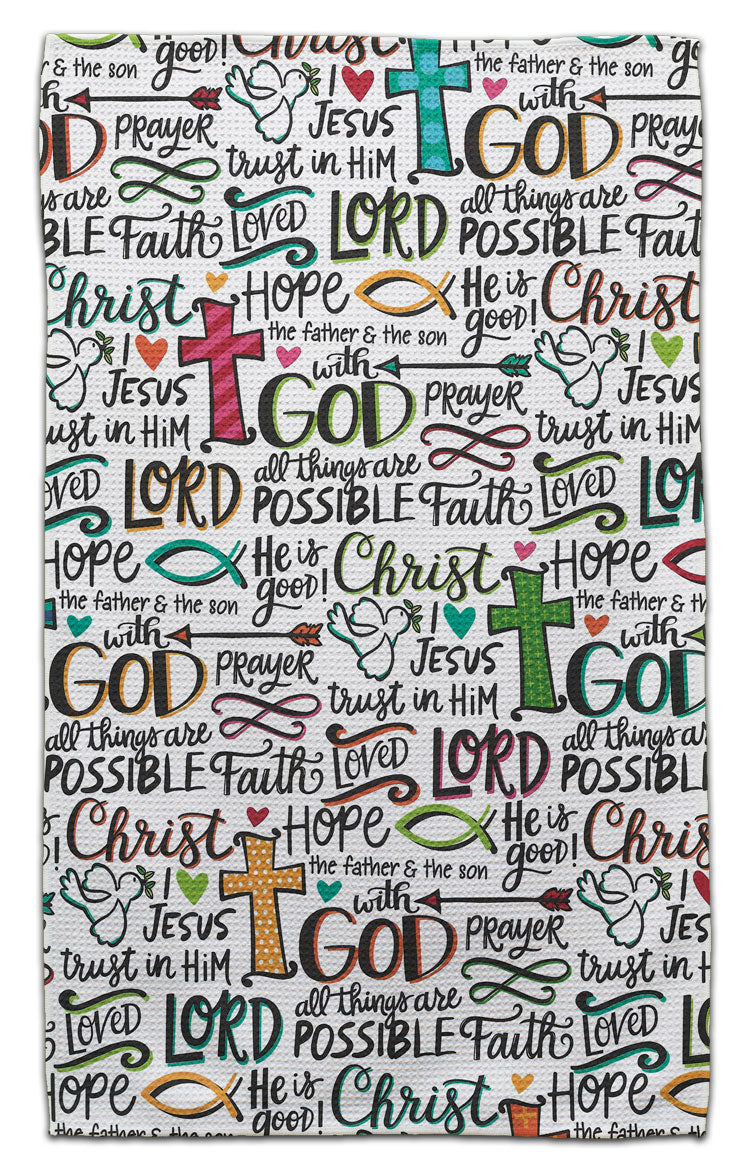 is good! Christ
the father & the son
& the son
I
JESUS
with
GOD
PRAYER
PRAY
trust in HiM
all things are
POSSIBLE
Faith
LOVED
LORD
Christ
HOPE
He is
good!
Christ
the father & the son
I
JESUS
with
GOD
PRAYER
I
JESUS
trust in HiM
trust in HiM
LORD
all things are
POSSIBLE
Faith
LOVED
HOPE
He is
good!
Christ
HOPE
the father & the son
the father & th
with
GOD
PRAYER
I
JESUS
with
GOD
trust in HiM
all things are
POSSIBLE
Faith
LOVED
LORD
all things are
POSSIBLE
Christ
HOPE
He is
good!
the father & the son
I
JESUS
with
GOD
PRAYER
I
JESUS
trust in HiM
trust in
LOVED
LORD
all things are
POSSIBLE
Faith
LOVED
HOPE
He is
good!
Christ
HOPE
the father & the son